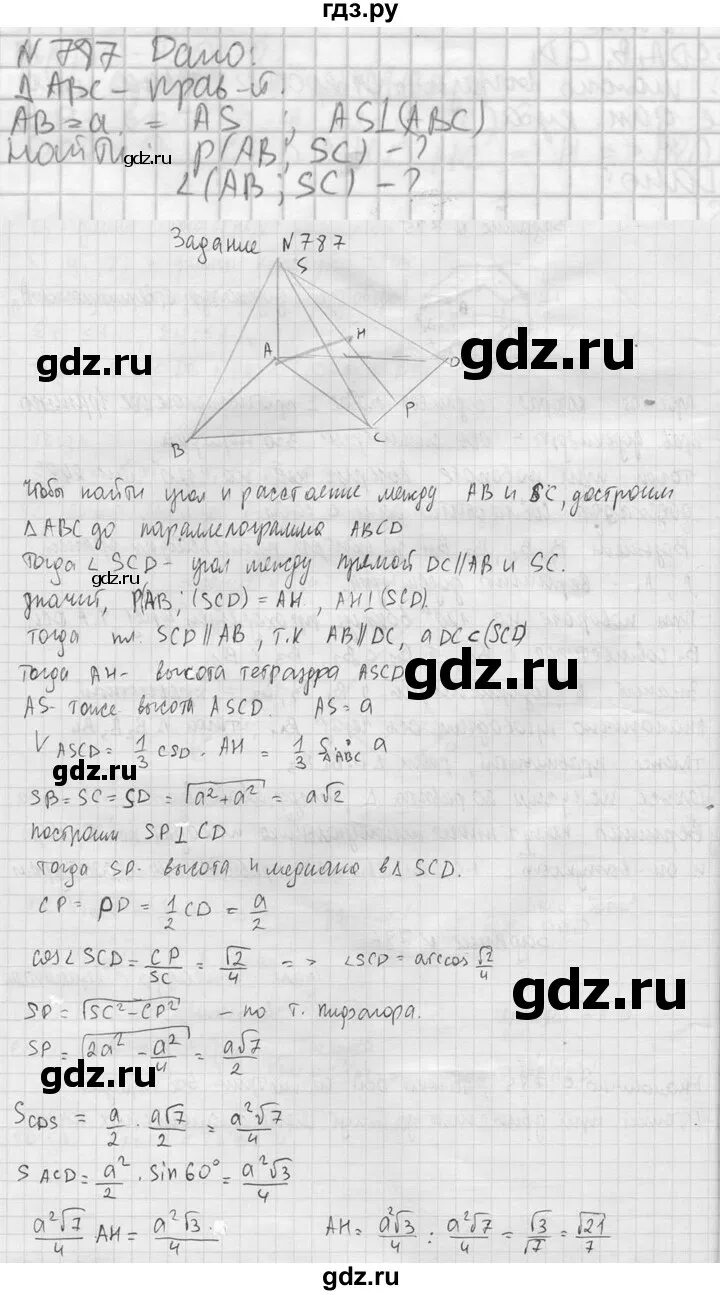 гдз.ру
N 787 Дано:
△ ABC - прав-й.
AB = a = AS ; AS⊥(ABC)
найти: ρ(AB; SC) - ?
gdz.ru
∠(AB; SC) - ?
Задание N787
S
H
A
D
gdz.ru
gdz.ru
P
C
B
Чтобы найти угол и расстояние между AB и SC, достроим
△ ABC до параллелограмма ABCD
Тогда ∠ SCD - угол между прямой DC∥AB и SC.
gdz.ru
значит, P(AB; (SCD) = AH, AH⊥(SCD).
тогда пл. SCD∥AB, т.к AB∥DC, a DC⊂(SCD)
Тогда AH - высота тетраэдра ASCD
gdz.ru
AS - тоже высота ASCD. AS = a
V ASCD = 1/3 CSD · AH = 1/3 S△ABC · a
gdz.ru
SB = SC = SD = √(a² + a²) = a√2
построим SP⊥CD
тогда SP - высота и медиана в △ SCD.
CP = PD = 1/2 CD = a/2
cos∠SCD = CP/SC = √2/4 => ∠SCD = arccos √2/4
gdz.ru
SP = √(SC² - CP²) - по т. Пифагора.
SP = √(2a² - a²/4) = a√7/2
gdz.ru
S CDS = a/2 · a√7/2 = a²√7/4
S ACD = a²/2 · sin 60° = a²√3/4
gdz.ru
a²√7/4 AH = a²√3/4 · AH = a²√3/4 : a²√7/4 = √3/√7 = √21/7
gdz.ru
gdz.ru